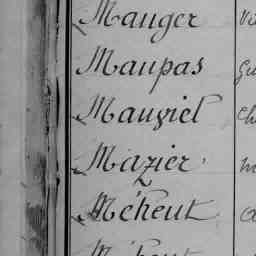 Mauger
Maupas
Mauviel
Mazier
Méheut